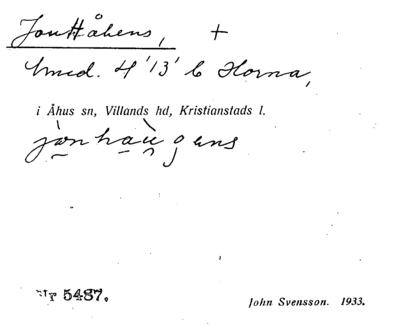 Jon Håkens, +
Smed. 4 '13' b Horna,
i Åhus sn, Villands hd, Kristianstads l.
Nr 5487.
John Svensson. 1933.